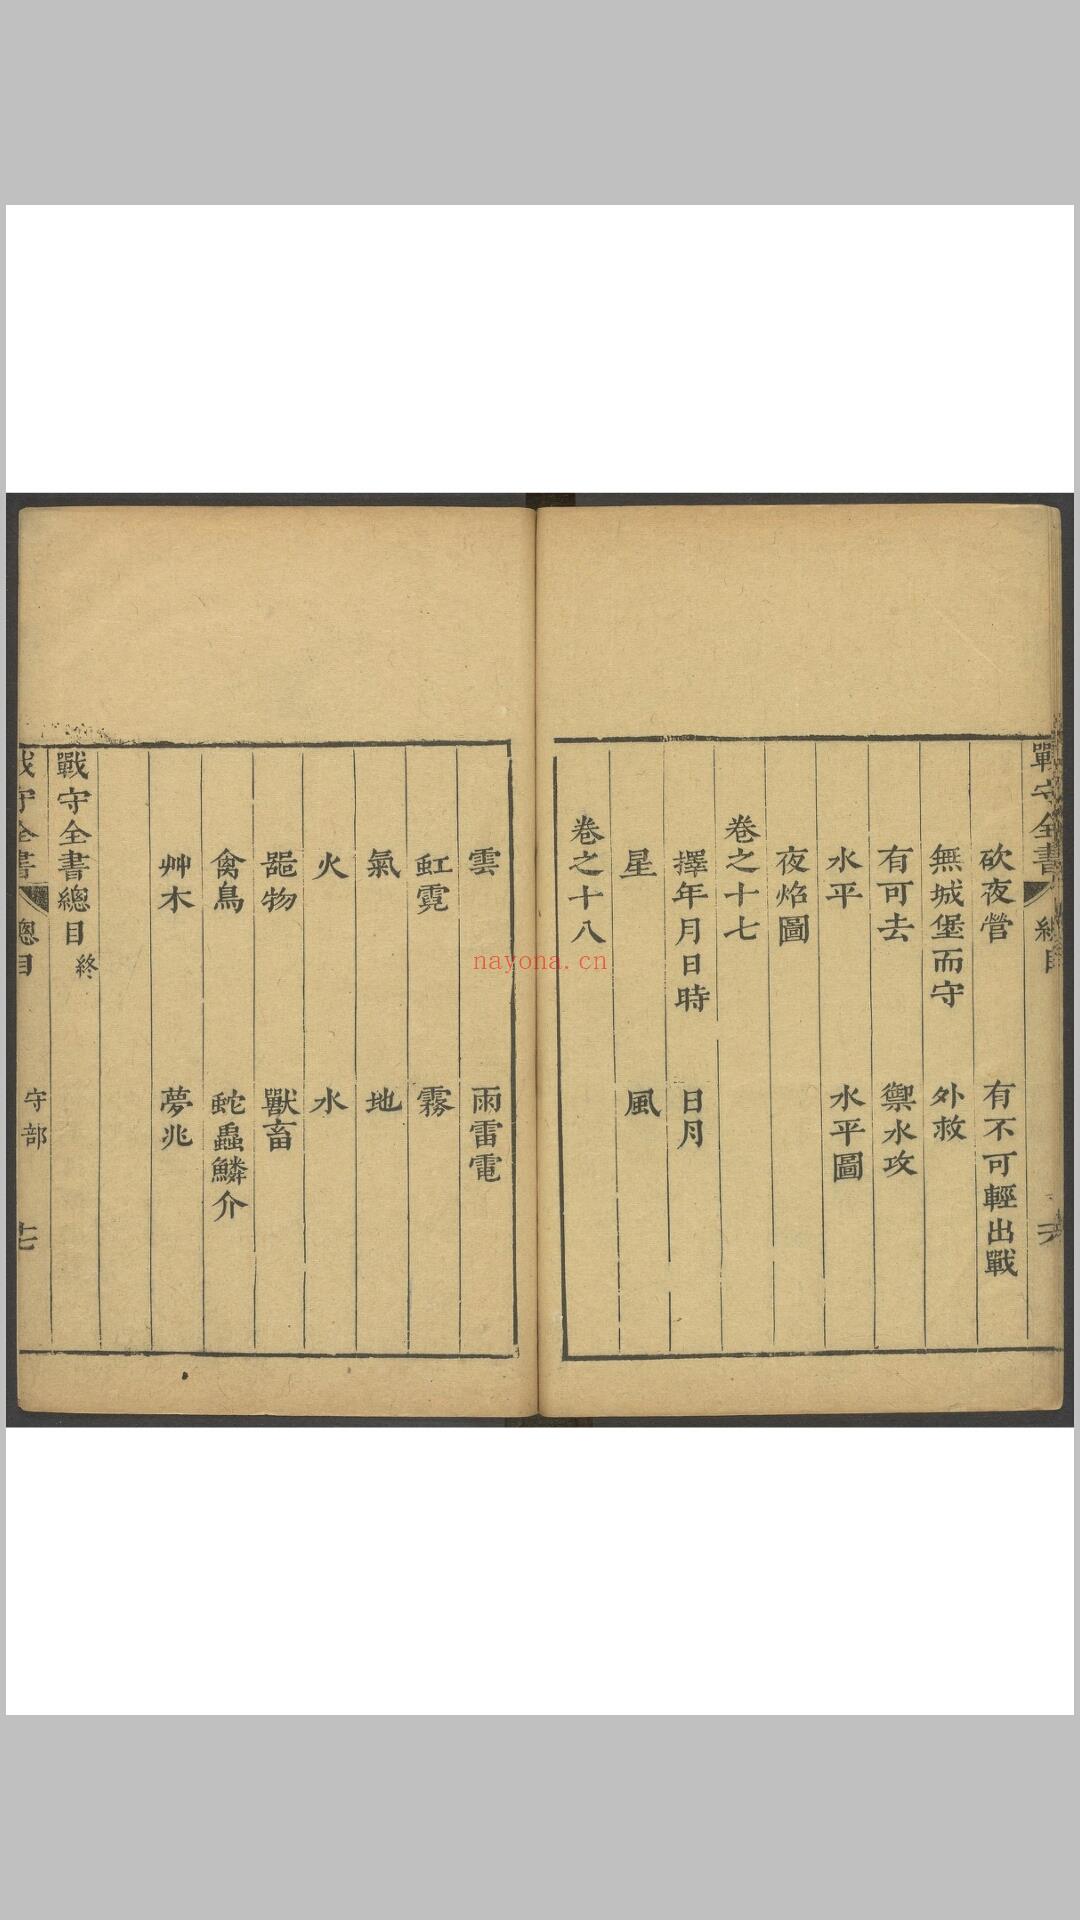 戰守全書 總目
砍夜營 有不可輕出戰
無城堡而守 外救
有可去 禦水攻
水平 水平圖
夜焰圖
卷之十七
擇年月日時 日月
星 風
卷之十八
雲 雨雷電
虹霓 霧
氣 地
火 水
噐物 獸畜
禽鳥 蛇蟲鱗介
艸木 夢兆
戰守全書總目 終
戰守全書 總目 守部 十七
nayona.cn